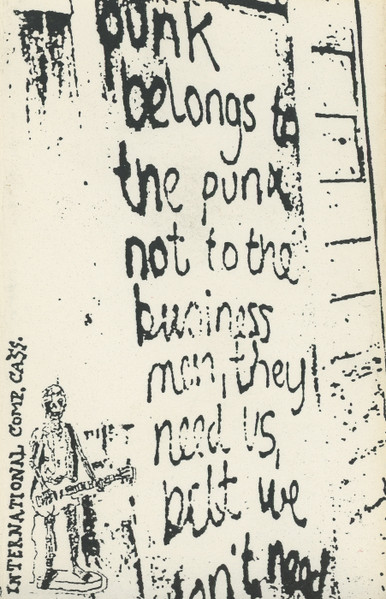 punk
belongs to
the punx
not to the
business
man, they
need us,
but we
don't need
INTERNATIONAL COMP. CASS.